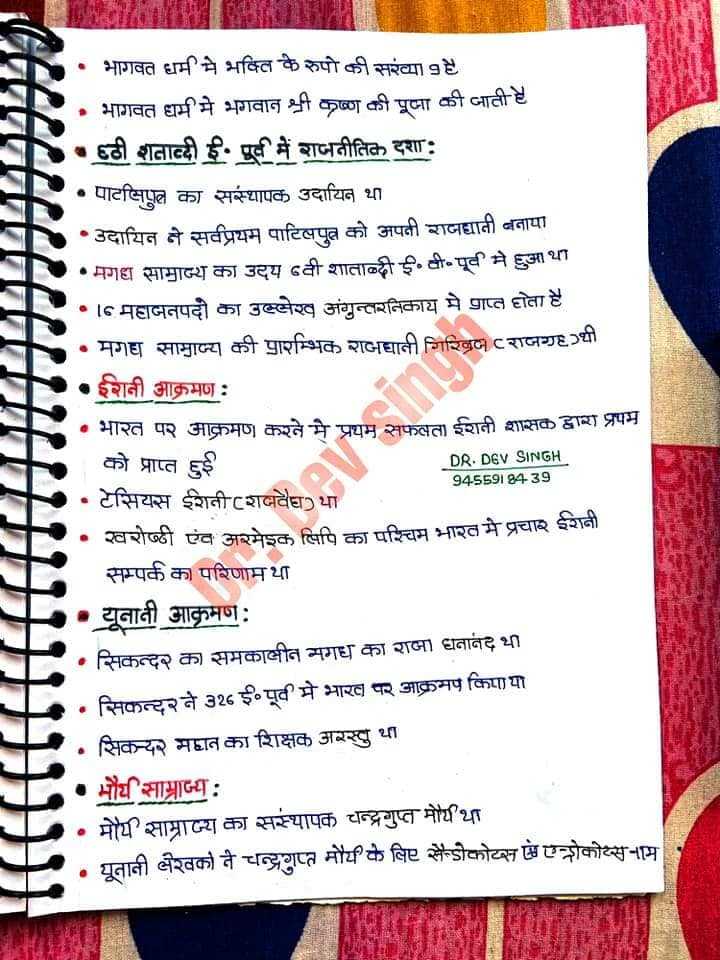 • भागवत धर्म मे भक्ति के रुपो की सरंव्या 9 है
• भागवत धर्म मे भगवान श्री कृष्ण की पूजा की जाती है
• 6ठी शताब्दी ई॰ पूर्व में राजनीतिक दशा:
• पाटलिपुत्र का सरंस्थापक उदायिन था
• उदायिन ने सर्वप्रथम पाटिलपुत्र को अपनी राजधानी बनाया
• मगध साम्राज्य का उदय 6वी शाताब्दी ई॰ वी॰ पूर्व मे हुआ था
• 16 महाजनपदो का उल्लेरव अंगुन्तरनिकाय मे प्राप्त होता है
• मगध साम्राज्य की प्रारम्भिक राजधानी गिरिव्रज (राजगृह) थी
• ईरानी आक्रमण:
• भारत पर आक्रमण करने मे प्रथम सफलता ईरानी शासक द्वारा प्रथम
को प्राप्त हुई
DR. DEV SINGH
9455918439
• टेसियस ईरानी (राजवैध) था
• रवरोष्ठी एंव अरमेइक लिपि का पश्चिम भारत मे प्रचार ईरानी
सम्पर्क का परिणाम था
• यूनानी आक्रमण:
• सिकन्दर का समकालीन मगध का राजा धनानंद था
• सिकन्दर ने 326 ई॰ पूर्व मे भारत पर आक्रमण किया था
• सिकन्दर महान का शिक्षक अरस्तु था
• मौर्य साम्राज्य:
• मौर्य साम्राज्य का सरंस्थापक चन्द्रगुप्त मौर्य था
• यूनानी लेरवको ने चन्द्रगुप्त मौर्य के लिए सैन्डोकोटस एंव एन्ड्रोकोटस नाम
Dr. Dev singh